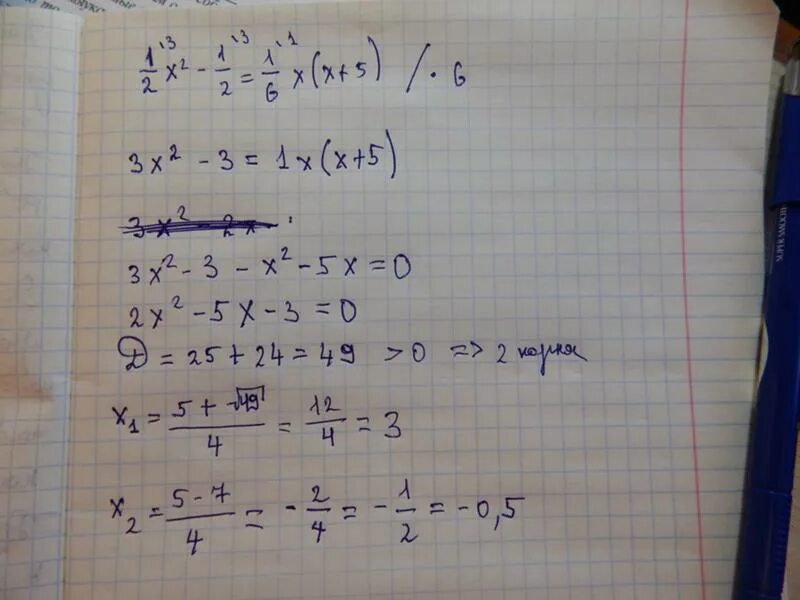 1/2 ^3 x² - 1/2 ^3 = 1/6 ^1 x(x+5) / · 6
3x² - 3 = 1x(x+5)
3x² - 3 - x² - 5x = 0
2x² - 5x - 3 = 0
D = 25 + 24 = 49 > 0 => 2 корня
x₁ = (5 + √49)/4 = 12/4 = 3
x₂ = (5 - 7)/4 = - 2/4 = - 1/2 = - 0,5